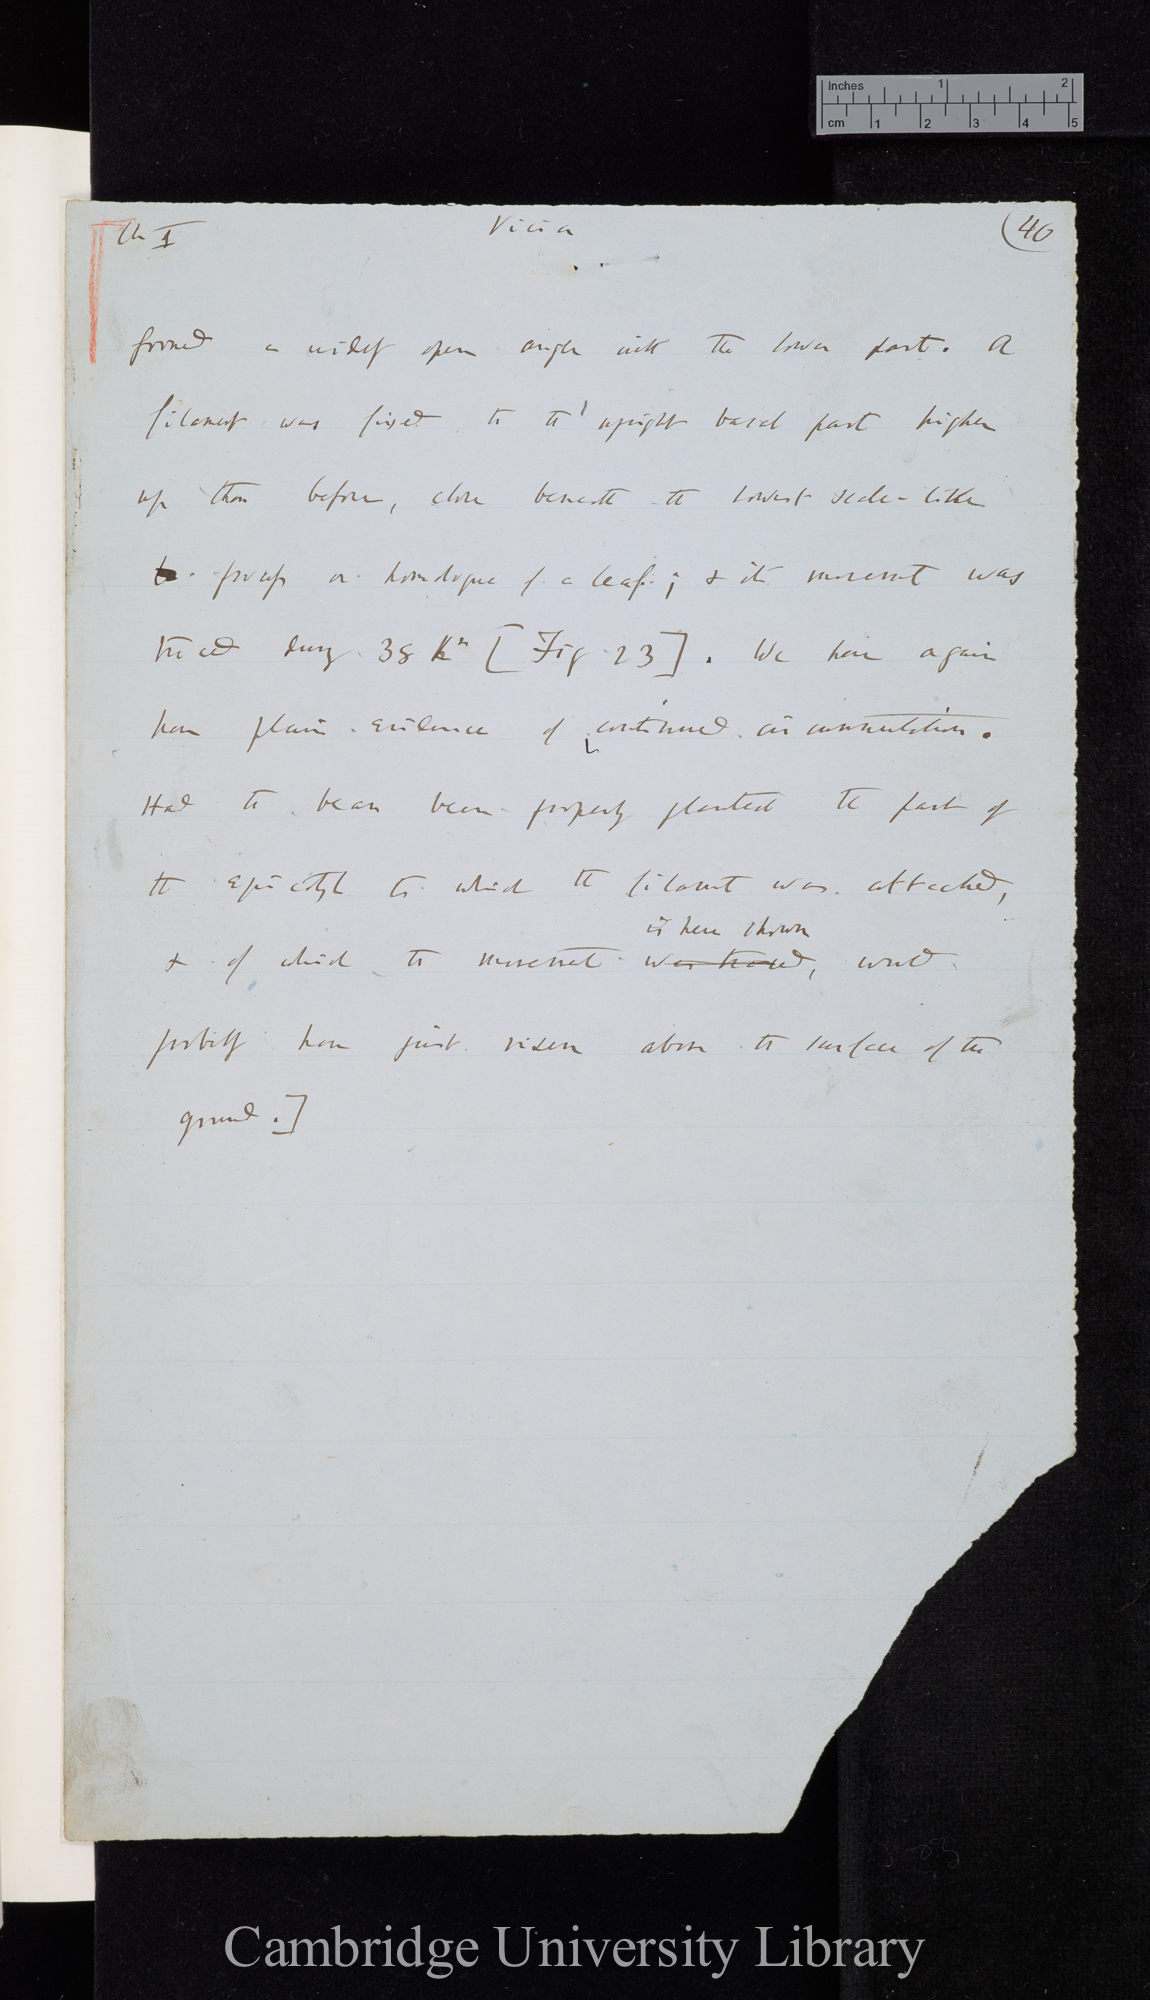 Inches 1 2
cm 1 2 3 4 5
Ch I Vicia (40
formed a widely open angle with the lower part. A
filament was fixed to the upright basal part higher
up than before, close beneath the lowest scale-like
process or homologue of a leaf; & its movement was
traced during 38 hrs [Fig 23]. We have again
here plain evidence of continued circumnutation.
Had the bean been properly planted the part of
the epicotyl to which the filament was attached,
is here shown
& of which the movement was traced, would
probably have just risen above the surface of the
ground.]
Cambridge University Library